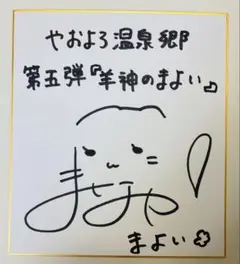 やおよろ温泉郷
第五弾『羊神のまよい』
まよい